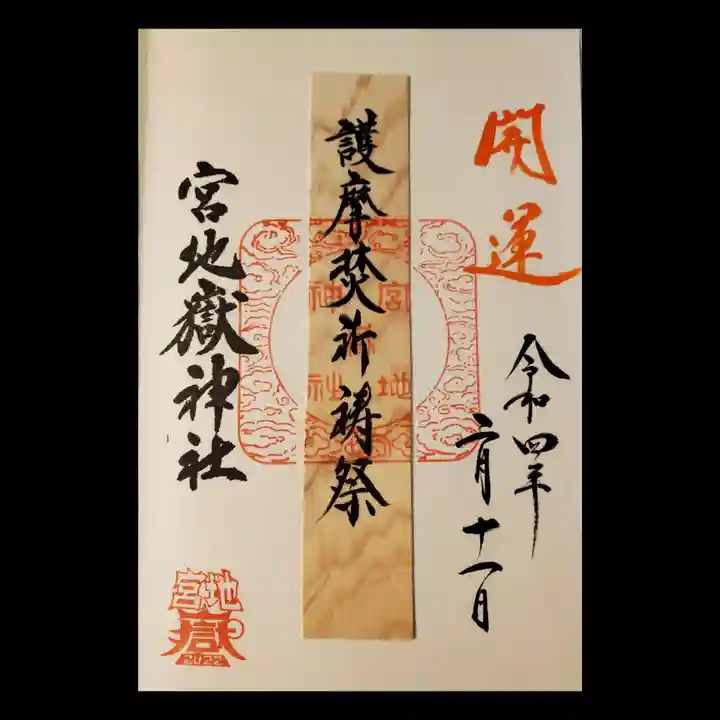 開運
令和四年
二月十一日
護摩焚祈祷祭
宮地嶽神社
宮地嶽神社
宮地嶽
2022